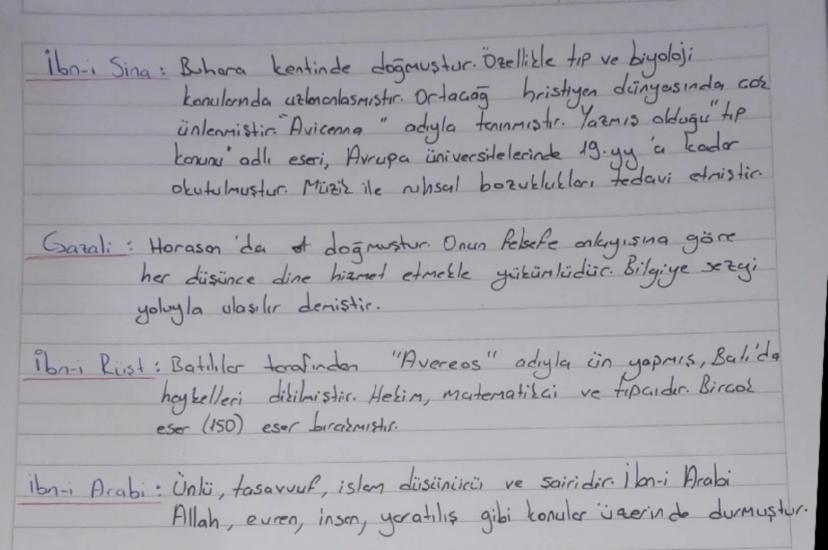 İbn-i Sina : Buhara kentinde doğmuştur. Özellikle tıp ve biyoloji
konularında uzmanlaşmıştır. Ortaçağ hristiyen dünyasında çok
ünlenmiştir "Avicenna" adıyla tanınmıştır. Yazmış olduğu "tıp
kanunu" adlı eseri, Avrupa üniversitelerinde 19.yy 'a kadar
okutulmuştur. Müzik ile ruhsal bozuklukları tedavi etmiştir.
Gazali : Horasan 'da doğmuştur. Onun felsefe anlayışına göre
her düşünce dine hizmet etmekle yükümlüdür. Bilgiye sezgi
yoluyla ulaşılır demiştir.
İbn-i Rüşt : Batılılar tarafından "Avereos" adıyla ün yapmış, Batı'da
heykelleri dikilmiştir. Hekim, matematikçi ve tıpçıdır. Birçok
eser (150) eser bırakmıştır.
ibn-i Arabi : Ünlü, tasavvuf, islam düşünürü ve şairidir. İbn-i Arabi
Allah, evren, insan, yaratılış gibi konular üzerinde durmuştur.